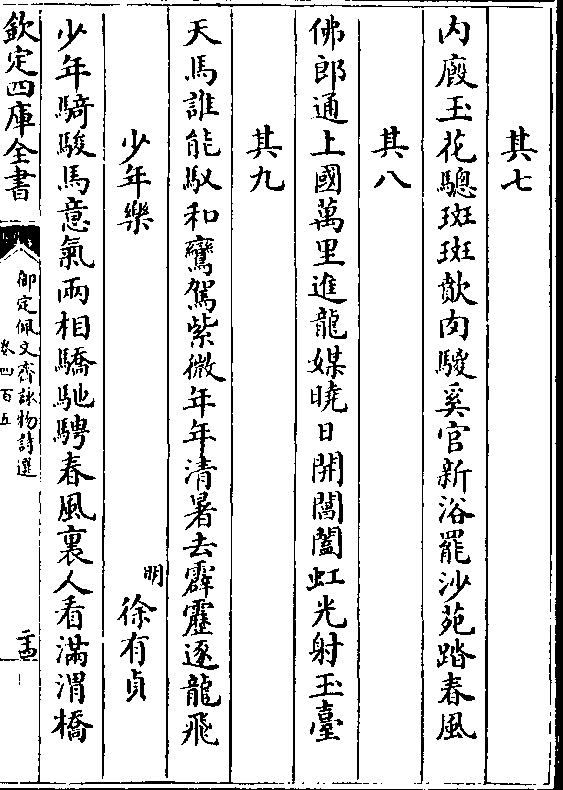 其七
内廏玉花驄斑斑散肉騣奚官新浴罷沙苑踏春風
其八
佛郎通上國萬里進龍媒曉日開閶闔虹光射玉臺
其九
天馬誰能馭和鸞駕紫微年年清暑去霹靂逐龍飛
少年樂
明 徐有貞
少年騎駿馬意氣兩相驕馳騁春風裏人看滿渭橋
欽定四庫全書
御定佩文齋詠物詩選
卷四百五